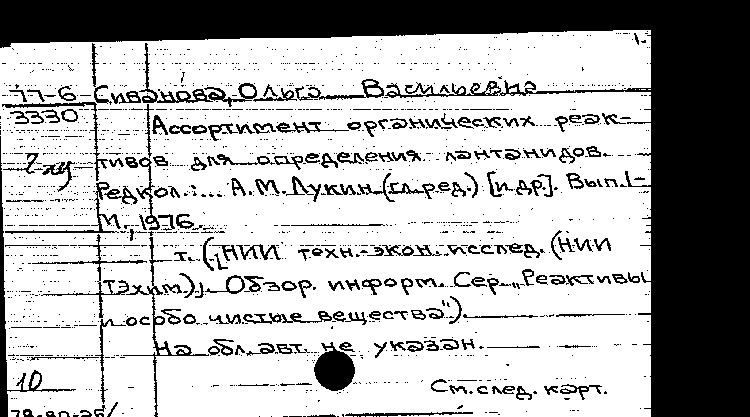 77-6 Сиванова, Ольга Васильевна
3330 Ассортимент органических реак-
тивов для определения лантанидов.
Редкол.:... А.М.Лукин (гл.ред.) [и др.]. Вып.1-
М., 1976.
т. ([НИИ техн.-экон. исслед. (НИИ
ТЭхим)]. Обзор. информ. Сер. „Реактивы
и особо чистые вещества").
На обл. авт. не указан.
10
См. след. карт.